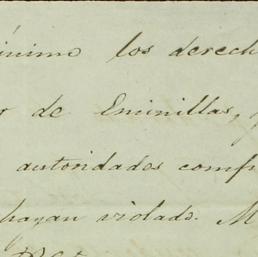 ínimo los derech
r de Encinillas,
autoridades comp
hayan violado. M